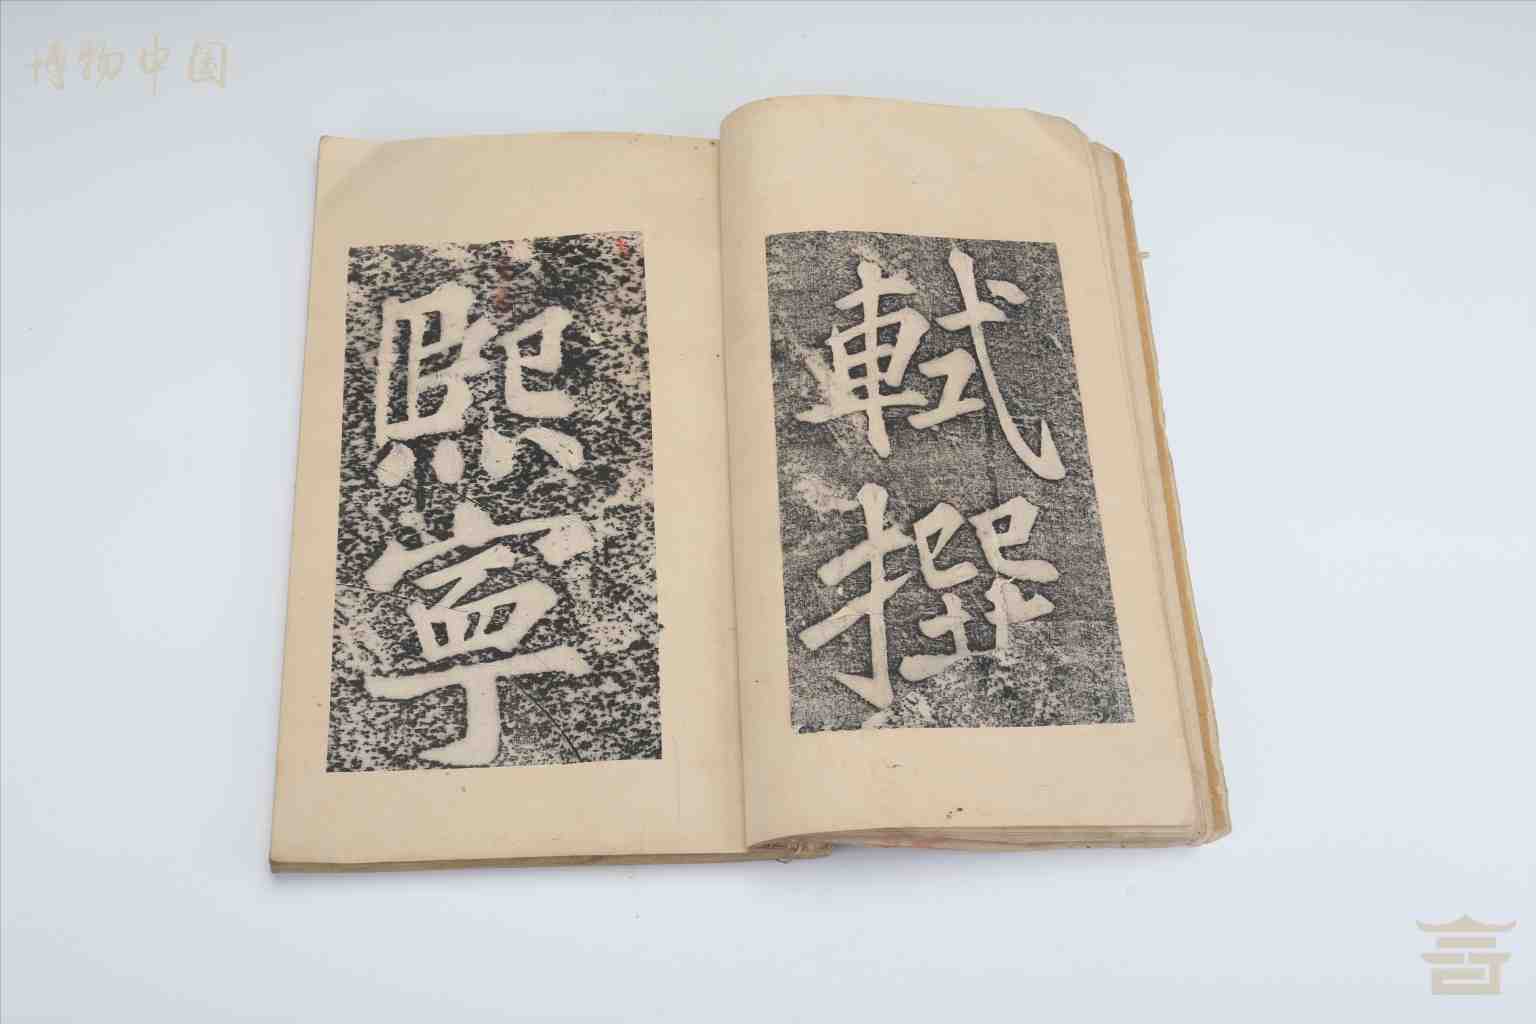 博物中国
軾撰
熙寧